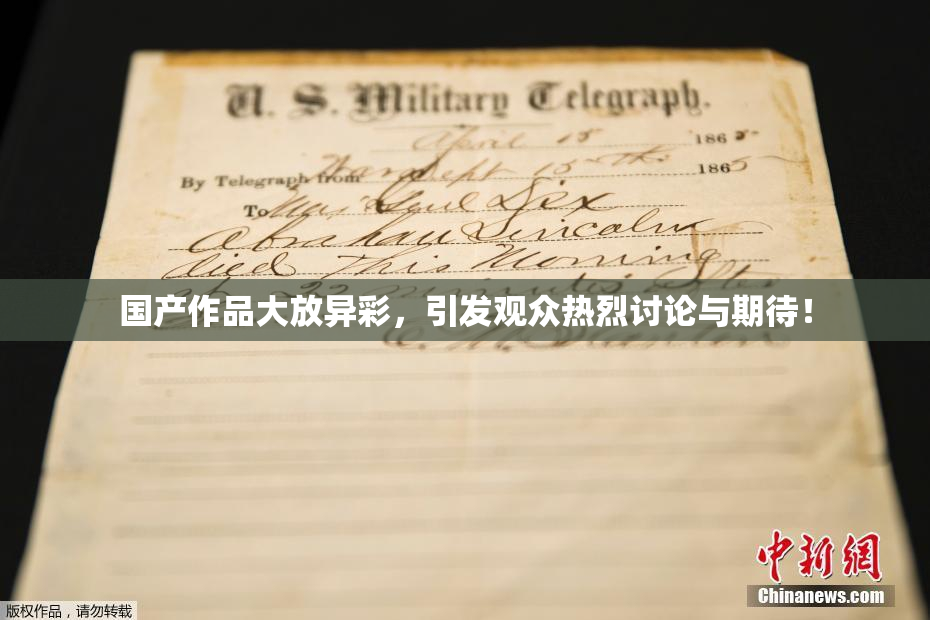 U. S. Military Telegraph.
April 15 1865-
By Telegraph from War Dept 15th 1865
To Maj Genl Dix
Abraham Lincoln
died This Morning
at 22 minutes after
国产作品大放异彩，引发观众热烈讨论与期待！
E. M. Stanton
中新網
Chinanews.com
版权作品，请勿转载